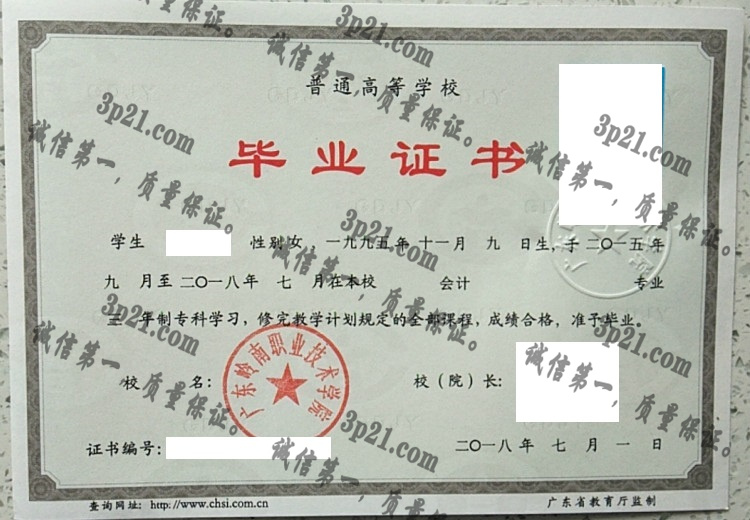 普通高等学校
毕业证书
学生 性别 女 一九九五年 十一月 九 日生，于 二〇一五 年
九 月至 二〇一八年 七 月在本校 会计 专业
三 年制专科学习，修完教学计划规定的全部课程，成绩合格，准予毕业。
校 名： 校（院）长：
广东岭南职业技术学院
证书编号： 二〇一八年 七 月 一 日
查询网址：http://www.chsi.com.cn 广东省教育厅监制
3p21.com
诚信第一，质量保证。
3p21.com
诚信第一，质量保证。
3p21.com
诚信第一，质量保证。
3p21.com
诚信第一，质量保证。
3p21.com
诚信第一，质量保证。
3p21.com
诚信第一，质量保证。
3p21.com
诚信第一，质量保证。